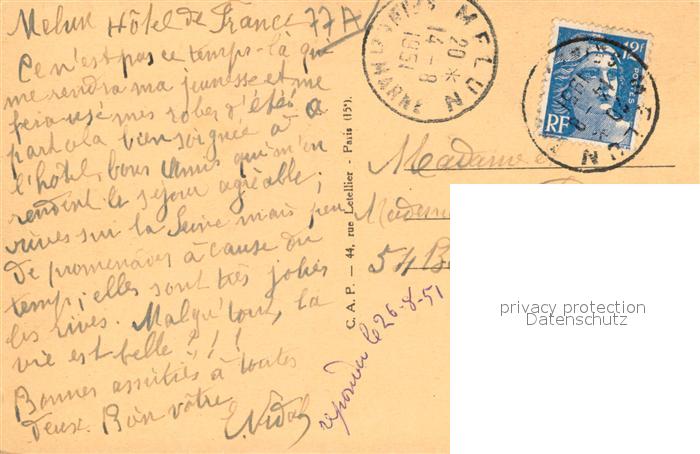 Melun Hôtel de France 77A
Ce n'est pas ce temps-là qui
me rendra ma jeunesse et me
fera usé mes robes d'été à
part cela bien soignée à
l'hôtel, bons amis qui m'en
rendent le séjour agréable;
rives sur la Seine mais peu
de promenades à cause du
temp; elles sont très jolies
les rives. Malgré tout, la
vie est belle ! ! !
Bonnes amitiés à toutes
deux. Bon vôtre
E. Vidal
C. A. P. — 44, rue Letellier - Paris (15e).
répondu le 26-8-51
MELUN
20 *
14-8
1951
MARNE
12F
POSTES
RF
MELUN
Madame et
Mademoi
54 B
privacy protection
Datenschutz